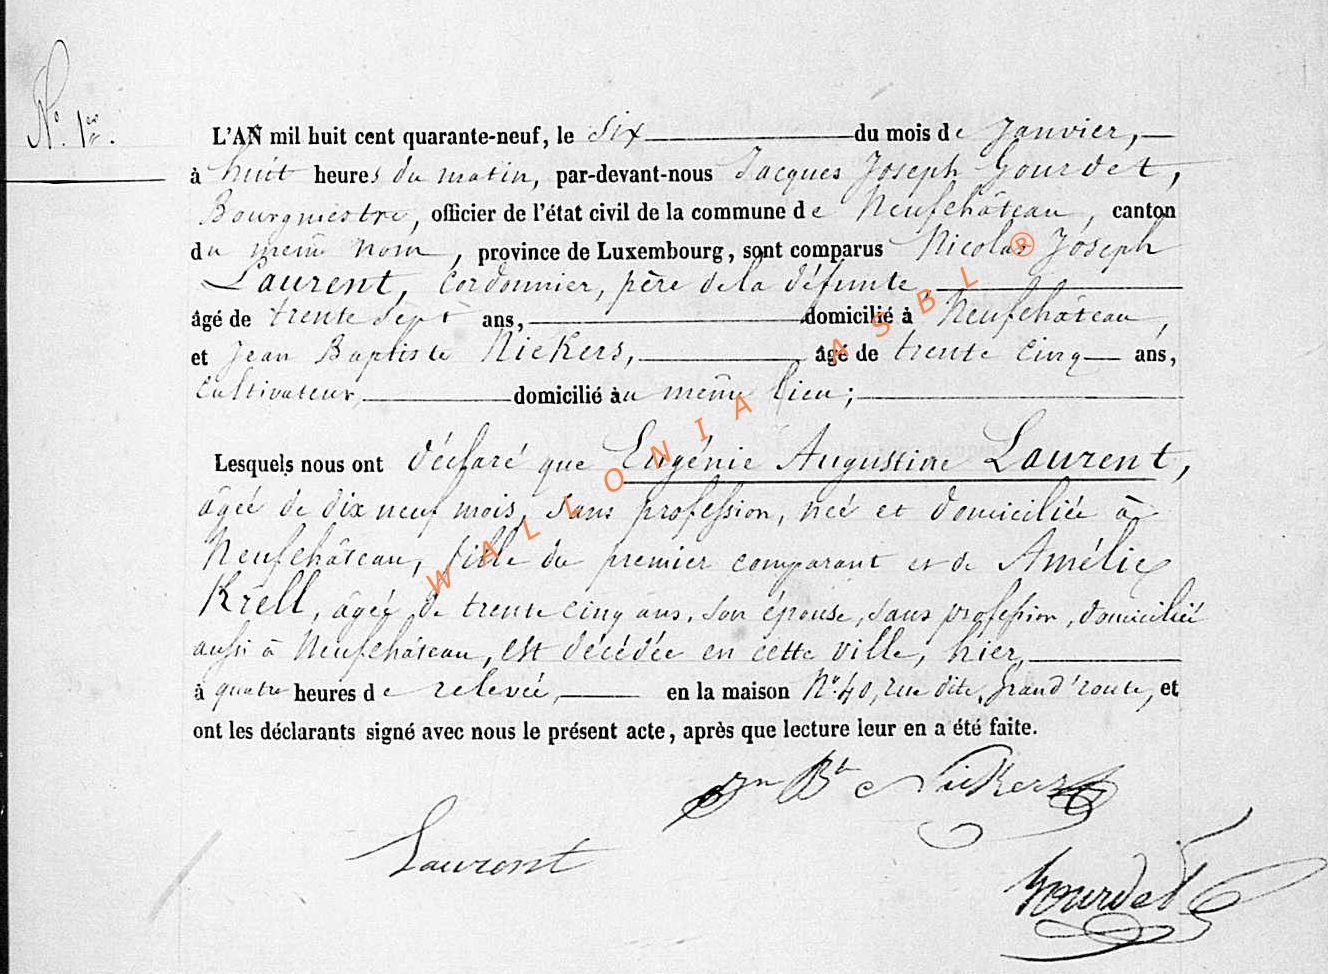 N.° 1er.
L'AN mil huit cent quarante-neuf, le six du mois de Janvier,
à huit heures du matin, par-devant-nous Jacques Joseph Gourdet,
Bourgmestre, officier de l'état civil de la commune de Neufchâteau, canton
du même nom, province de Luxembourg, sont comparus Nicolas Joseph
Laurent, Cordonnier, père de la défunte,
âgé de trente sept ans, domicilié à Neufchâteau,
et Jean Baptiste Nickers, âgé de trente cinq ans,
Cultivateur, domicilié au même lieu;
Lesquels nous ont déclaré que Eugénie Augustine Laurent,
âgée de dix neuf mois, sans profession, née et domiciliée à
Neufchâteau, fille du premier comparant et de Amélie
Krell, âgée de trente cinq ans, son épouse, sans profession, domiciliée
aussi à Neufchâteau, est décédée en cette ville, hier,
à quatre heures de relevée, en la maison N°. 40, rue dite Grand'route, et
ont les déclarants signé avec nous le présent acte, après que lecture leur en a été faite.
Jn Bte Nickers
Laurent
Gourdet
WALLONIA ASBL ®